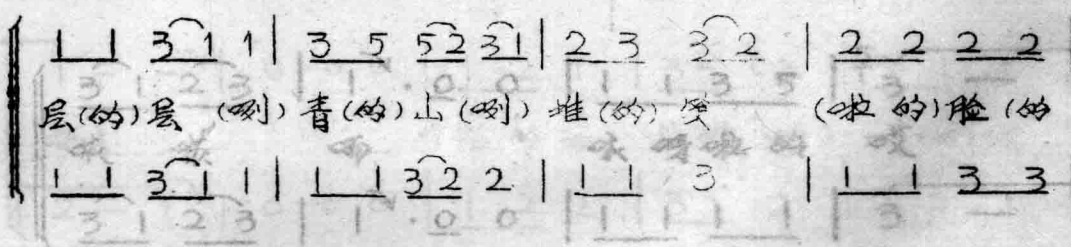 1 1 3 1 1 | 3 5 5 2 3 1 | 2 3 3 2 | 2 2 2 2
层(的)层 (咧) 青(的)山(咧) 堆(的) (啦的)脸(的
1 1 3 1 1 | 1 1 3 2 2 | 1 1 3 | 1 1 3 3